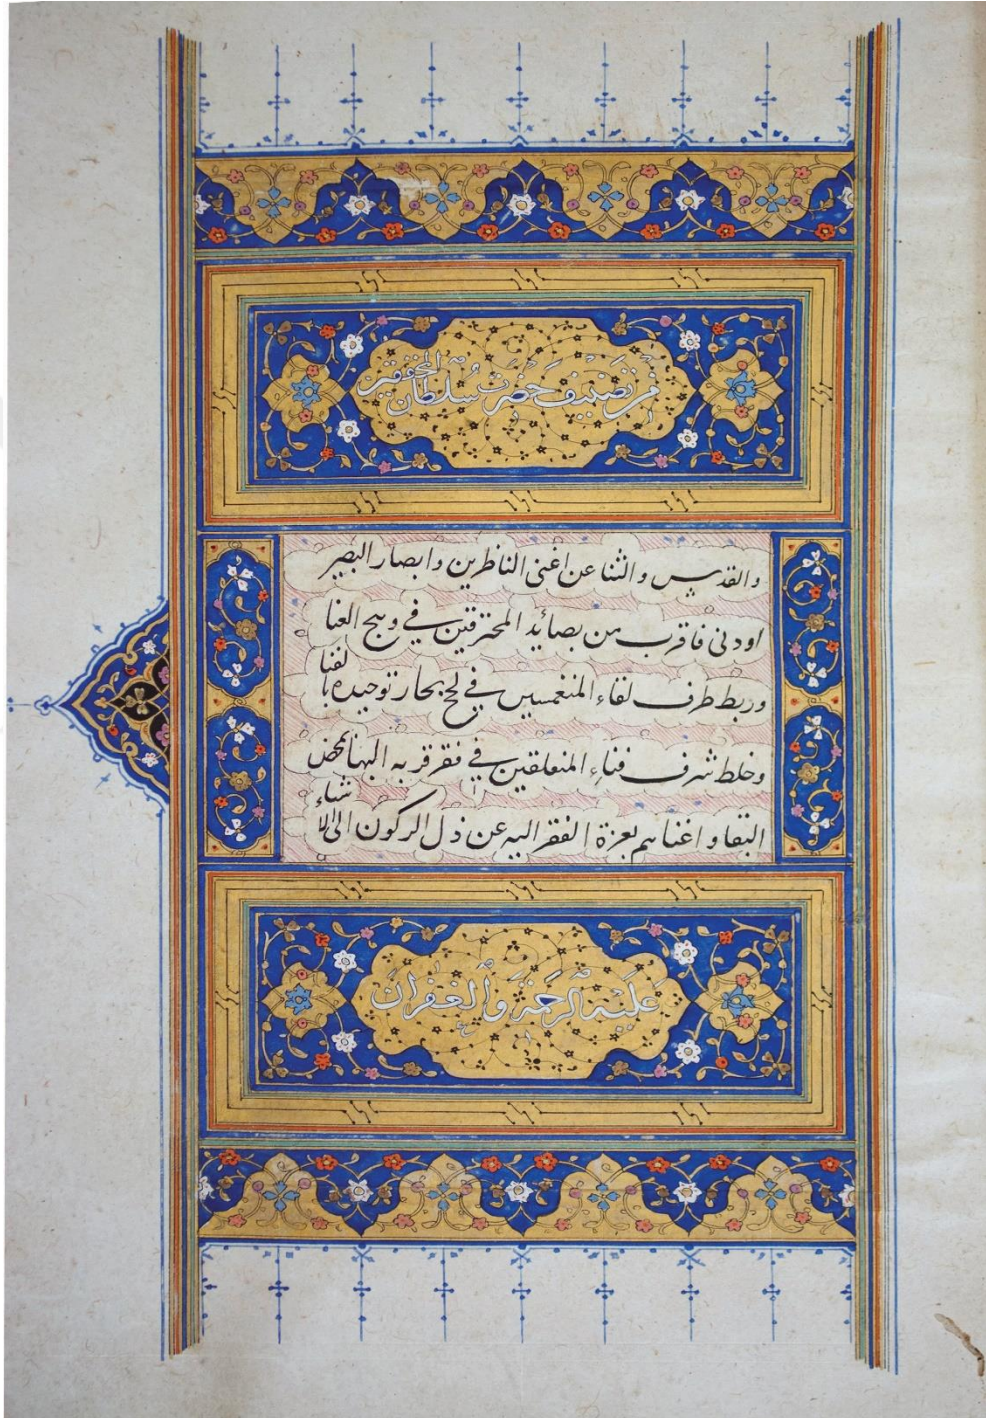 من تصنیف حضرت سلطان المحققین
والقدس والثنا عن اغنی الناظرین وابصار البصیر
اودنی فاقرب من بصائد المحترقین فی وهج العنا
وربط طرف لقاء المنغمسین فی لجج بحار توحیده بالفنا
وخلط شرف فناء المتعلقین فی فقر قربه البهنا بمحض
البقا و اغناهم بعزة الفقر الیه عن ذل الرکون الی الاشیاء
علیه الرحمة والغفران